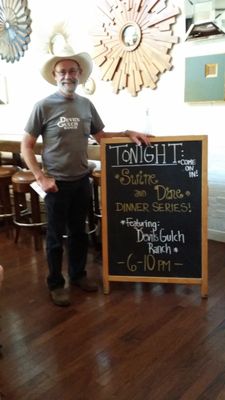 TONIGHT:
*COME
ON
IN!*
*Swine
AND Dine*
DINNER SERIES!
*Featuring:
Devil's Gulch
Ranch*
-6-10 PM-
DEVIL'S
GULCH
RANCH